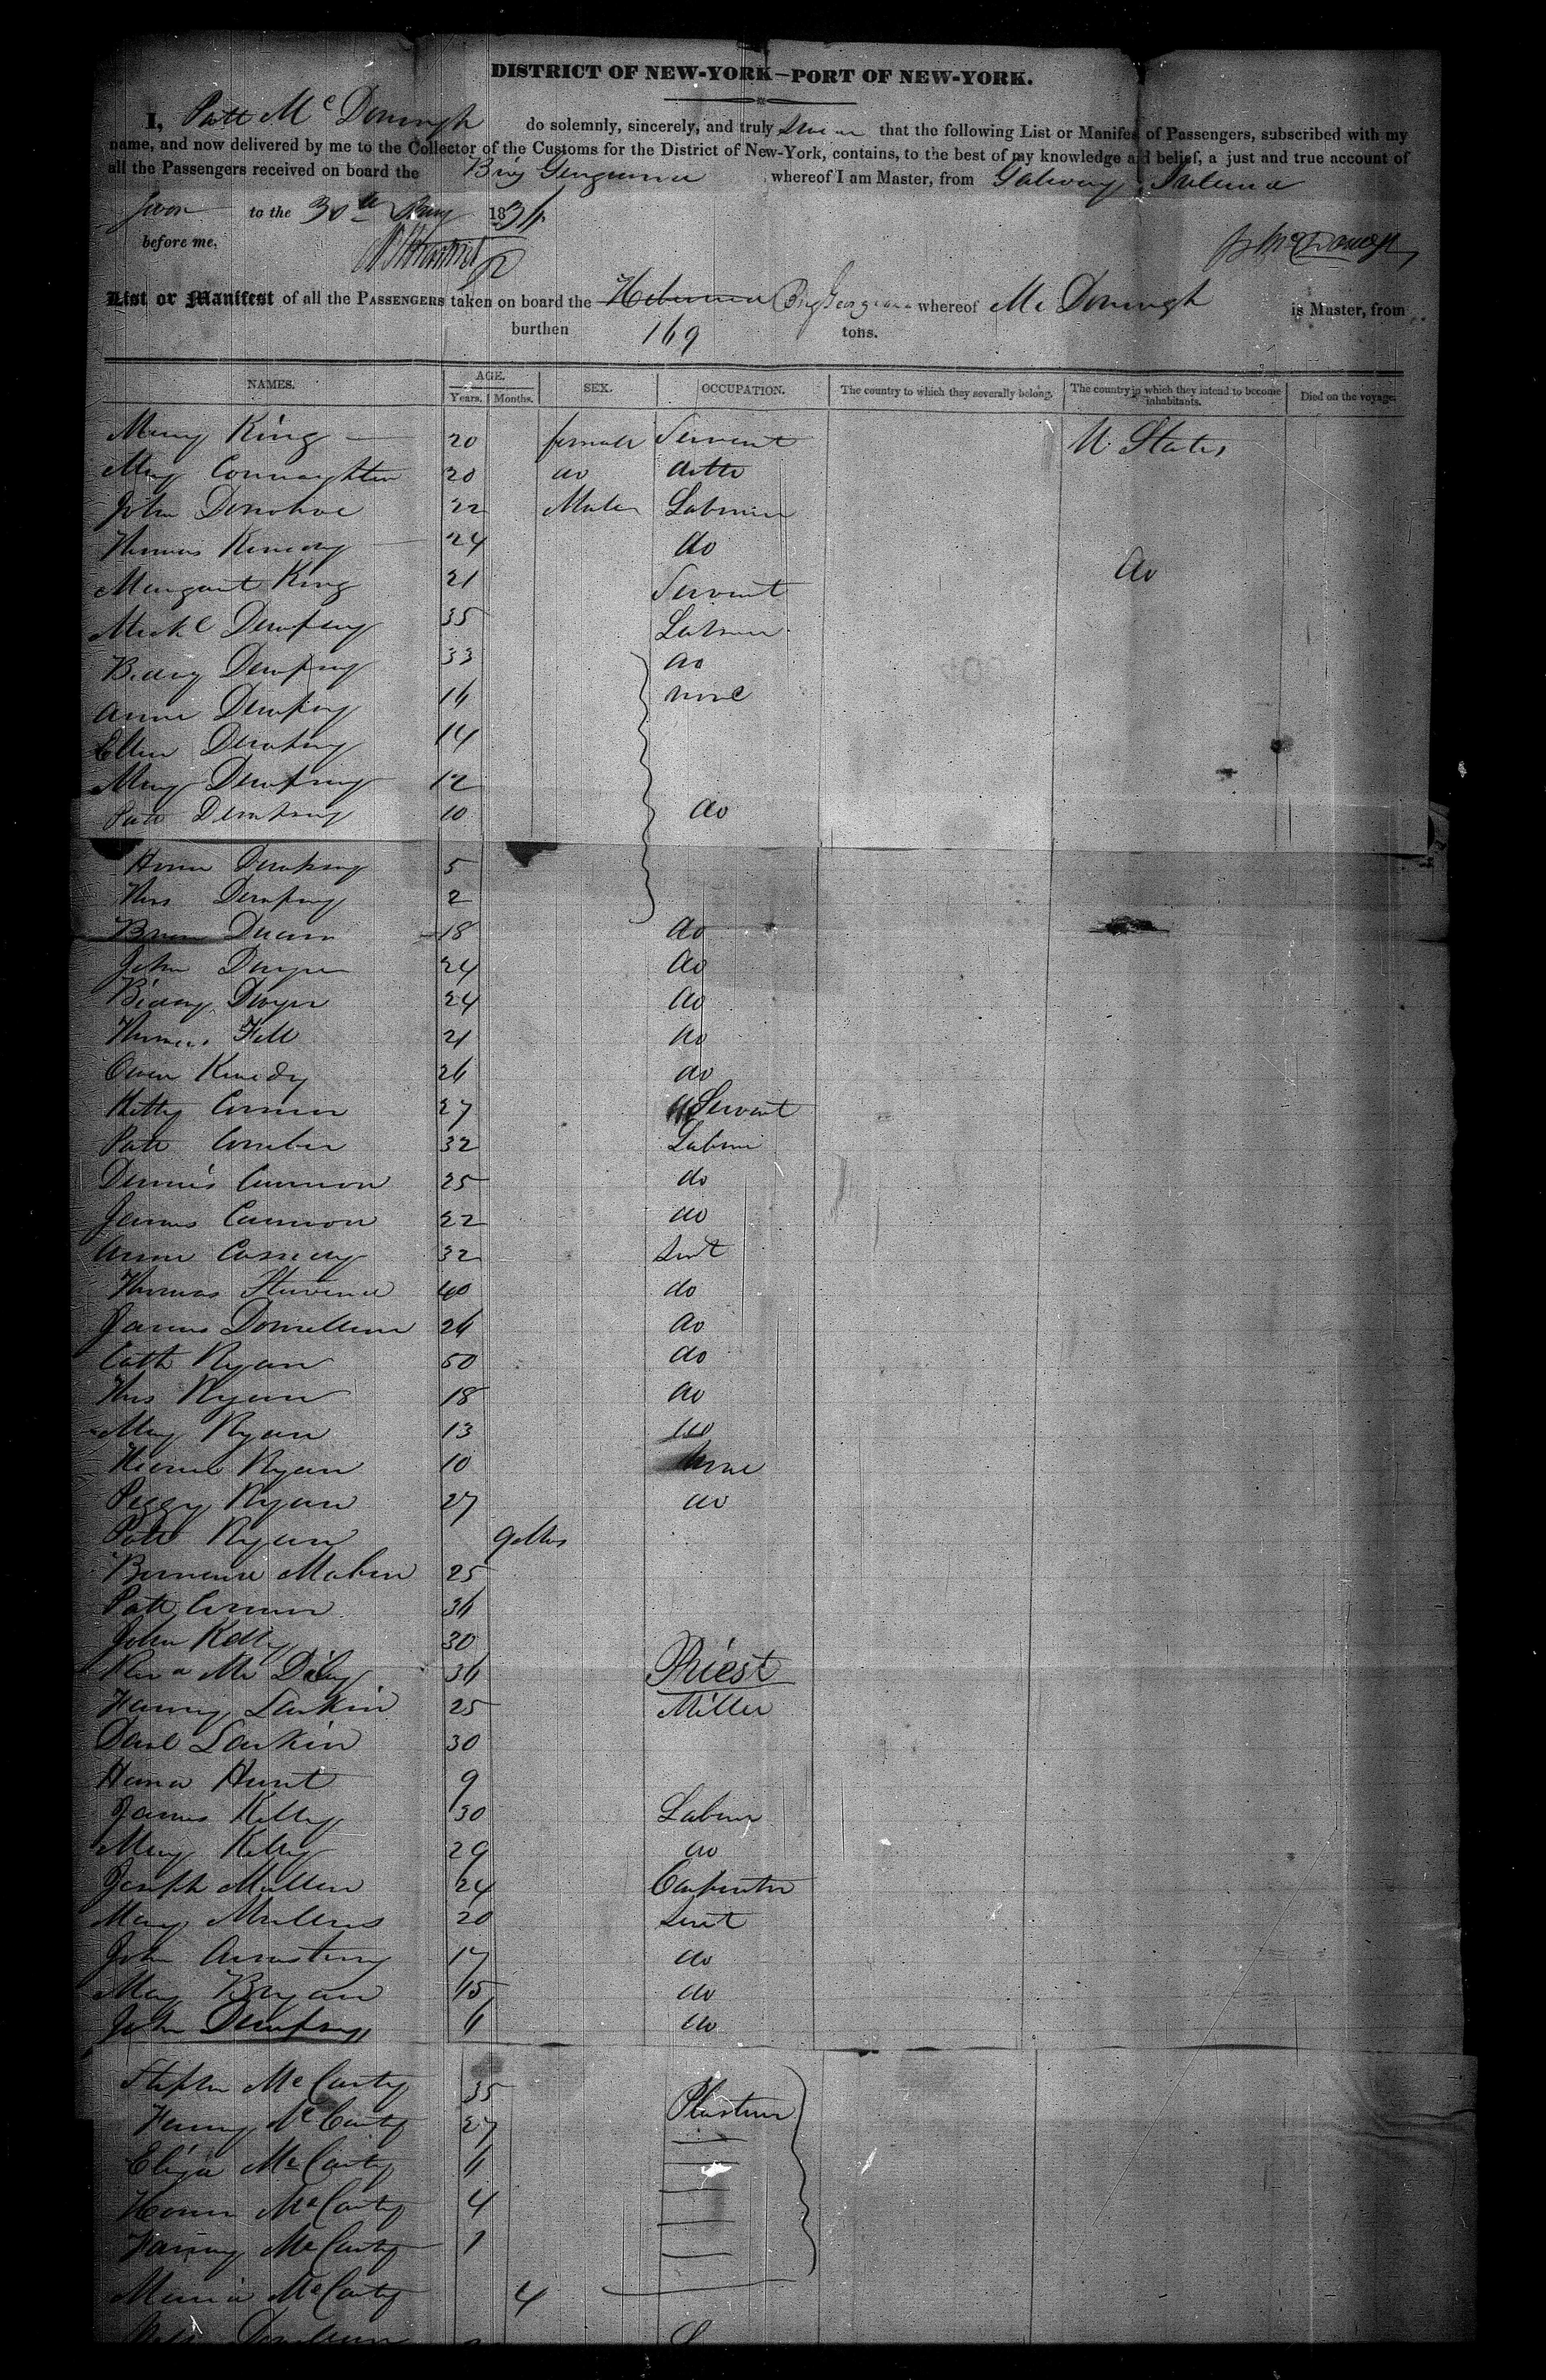 DISTRICT OF NEW-YORK—PORT OF NEW-YORK.
I, Patt McDonough do solemnly, sincerely, and truly swear that the following List or Manifest of Passengers, subscribed with my
name, and now delivered by me to the Collector of the Customs for the District of New-York, contains, to the best of my knowledge and belief, a just and true account of
all the Passengers received on board the Brig whereof I am Master, from Galway Ireland
to the 30th 183
before me,
List or Manifest of all the PASSENGERS taken on board the Brig whereof Mc Donough is Master, from
burthen 169 tons.
NAMES. AGE. SEX. OCCUPATION. The country to which they severally belong. The country in which they intend to become inhabitants. Died on the voyage.
Years. Months.
Mary King 20 female Servent U States
Mary Connaghton 20 do ditto
John Donohoe 22 Males Labourer
Thomas Kenedy 24 do
Margaret King 21 Servent do
Mickl Dempsey 35 Labourer
Biddy Dempsey 33 do
Anne Dempsey 16 none
Ellen Dempsey 14
Mary Dempsey 12
Patt Dempsey 10 do
Honor Dempsey 5
Thos Dempsey 2
18 do
John Dwyer 24 do
Biddy Dwyer 24 do
Thomas 21 do
Owen Kenedy 26 do
Kitty 27 Servent
Patt Comber 32 Labour
Dennis Cannon 25 do
James Cannon 22 do
Anne Cassedy 32 Servt
Thomas 40 do
James Donnellan 26 do
Cath Ryan 50 do
Thos Ryan 18 do
Mary Ryan 13 do
Ryan 10 None
Peggy Ryan 27 do
Patt Ryan 9 Mos
25
Patt 36
John Kelly 30
Revd Mr Daly 36 Priest
Larkin 25 Miller
Danl Larkin 30
Hana Hunt 9
James Kelly 30 Labour
Mary Kelly 29 do
Joseph Mullen 24 Carpenter
Mary Mullens 20 Servt
John Armstrong 17 do
Mary Bryan 15 do
John Dempsey 6 do
Stephen McCarty 35 Plasterer
Fanny McCarty 27
Eliza McCarty 6
Honor McCarty 4
Fanny McCarty 1
Maria McCarty 4